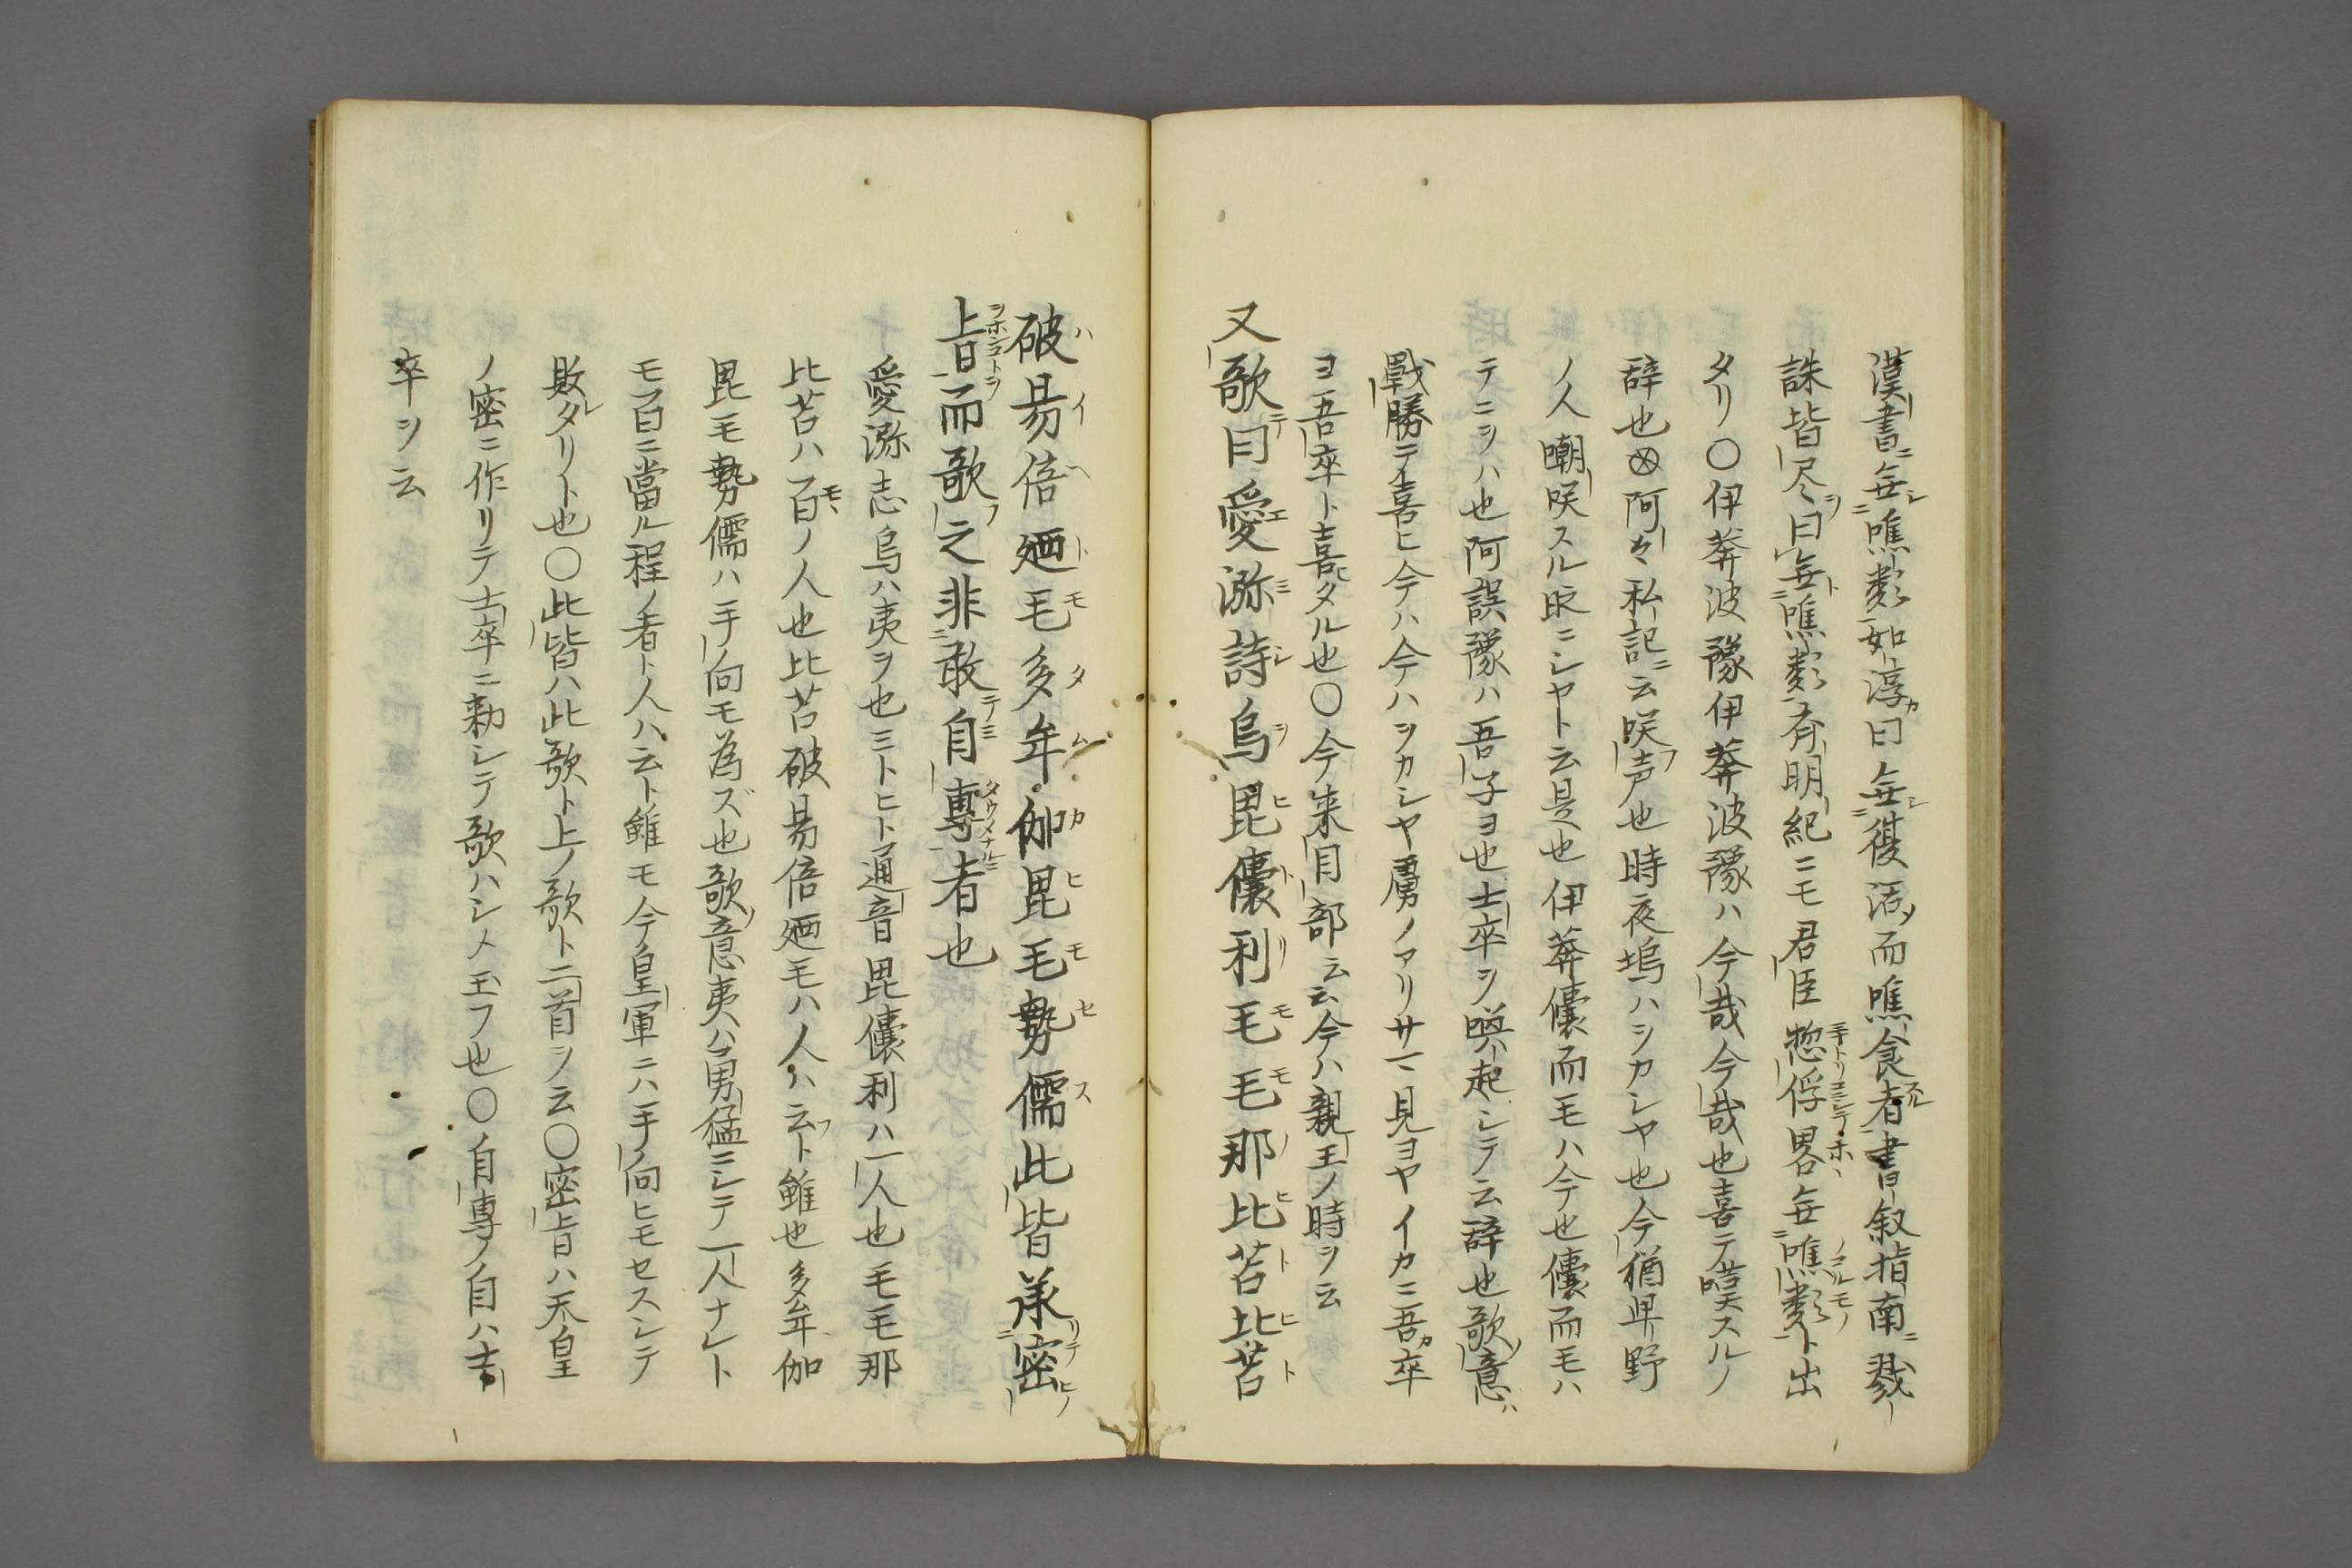 漢書ニ無噍類如淳カ曰無復活而噍食者書叙指南ニ戮
誅皆尽ヲ曰無噍類ト斉明紀ニモ君臣惣俘畧無噍類ト出
タリ〇伊莾波豫伊莾波豫ハ今哉今哉也喜テ嘆スルノ
辞也⊗阿々私記ニ云咲声也時夜塢ハシカシヤ也今猶県野
ノ人嘲咲スル ニシヤト云是也伊莾儴而毛ハ今也儴而毛ハ
テニヲハ也阿誤豫ハ吾子ヨ也士卒ヲ喚起シテ云辞也歌ノ意ハ
戰勝テ喜ヒ今ハ今ハヲカシヤ虜ノアリサマ見ヨヤイカニ吾カ卒
ヨ吾卒ト喜ヒタル也〇今来目部云云今ハ親王ノ時ヲ云
又歌テ曰愛濔詩烏毘儴利毛毛那比苔比苔
破易倍廼毛多牟伽毘毛勢儒此皆承密
旨而歌之非敢自專者也
愛濔志烏ハ夷ヲ也ミトヒト通音毘儴利ハ一人也毛毛那
比苔ハ百ノ人也比苔破易倍廼毛ハ人ハ云ト雖也多牟伽
毘毛勢儒ハ手向モ為ズ也歌ノ意夷ハ勇猛ニシテ一人ナレト
モ百ニ當ル程ノ者ト人ハ云ト雖モ今皇軍ニハ手向ヒモセスシテ
敗レタリト也〇此皆ハ此歌ト上ノ歌ト二首ヲ云〇密旨ハ天皇
ノ密ニ作リテ士卒ニ勅シテ歌ハシメ玉フ也〇自專ノ自ハ士
卒ヲ云